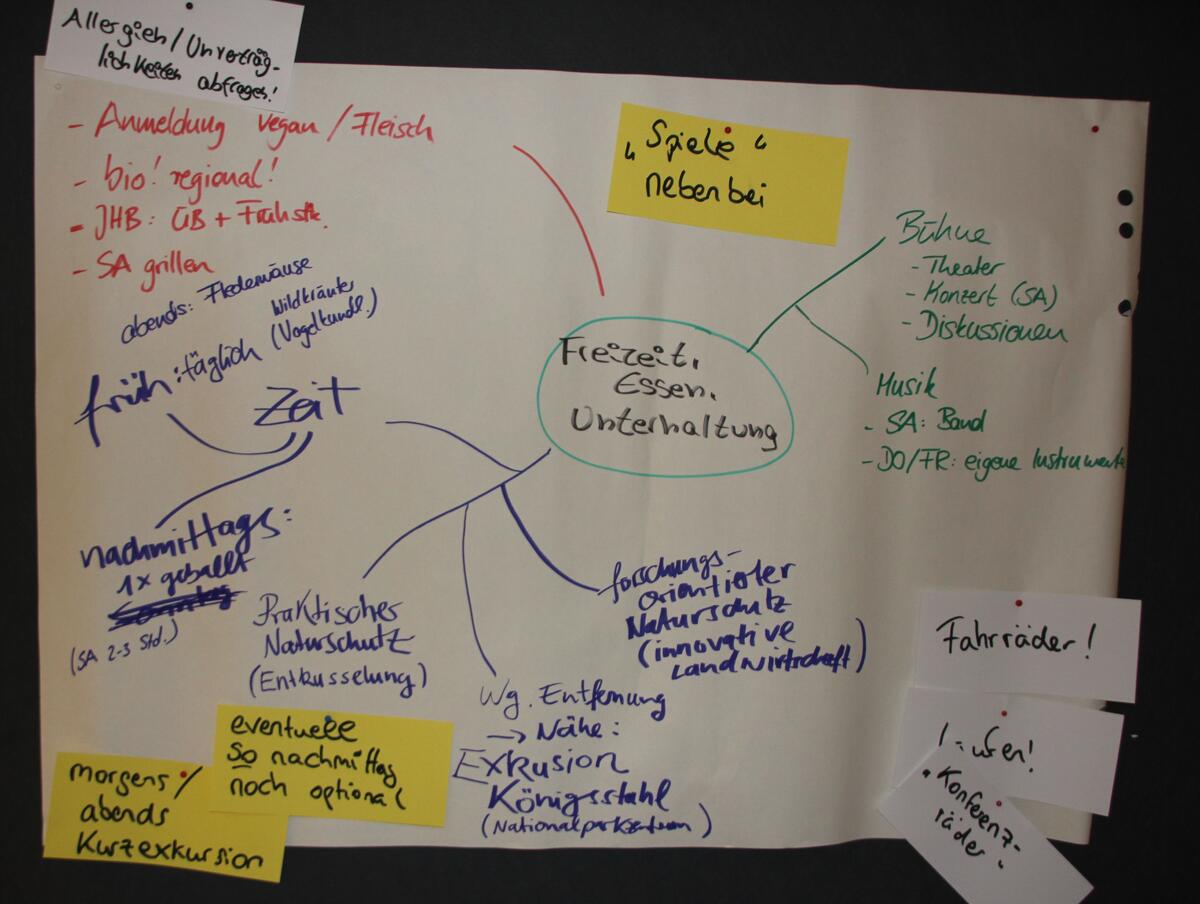 Allergien/Unverträg-
lichkeiten abfragen!
- Anmeldung vegan/Fleisch
- bio! regional!
- JHB: ÜB + Frühstk.
- SA grillen
abends: Fledermäuse
früh: täglich
Wildkräuter
(Vogelkundl.)
Zeit
nachmittags:
1x geballt
(SA 2-3 Std.)
„Spiele“
nebenbei
Freizeit,
Essen,
Unterhaltung
Bühne
- Theater
- Konzert (SA)
- Diskussionen
Musik
- SA: Band
- DO/FR: eigene Instrumente
Praktisches
Naturschutz
(Entkusselung)
Wg. Entfernung
→ Nähe:
Exkusion
Königsstahl
(Nationalparkzentrum)
forschungs-
orientierter
Naturschutz
(innovative
Landwirtschaft)
eventuell
So nachmittag
noch optional
morgens/
abends
Kurzexkursion
Fahrräder!
„Konferenz-
räder“